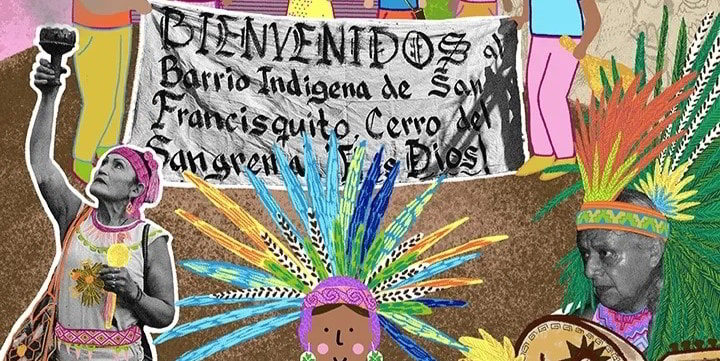 BIENVENIDOS al
Barrio Indigena de San
Francisquito, Cerro del
Sangremal Es Dios!